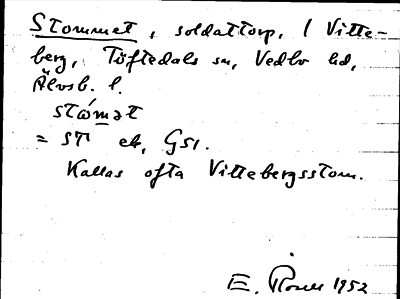 Stommet, soldattorp, / Vitte-
berg, Töftedals sn, Vedbo hd,
Älvsb. l.
stǻmət
= ST ek, GS1.
Kallas ofta Vittebergsstom.
E. 1952